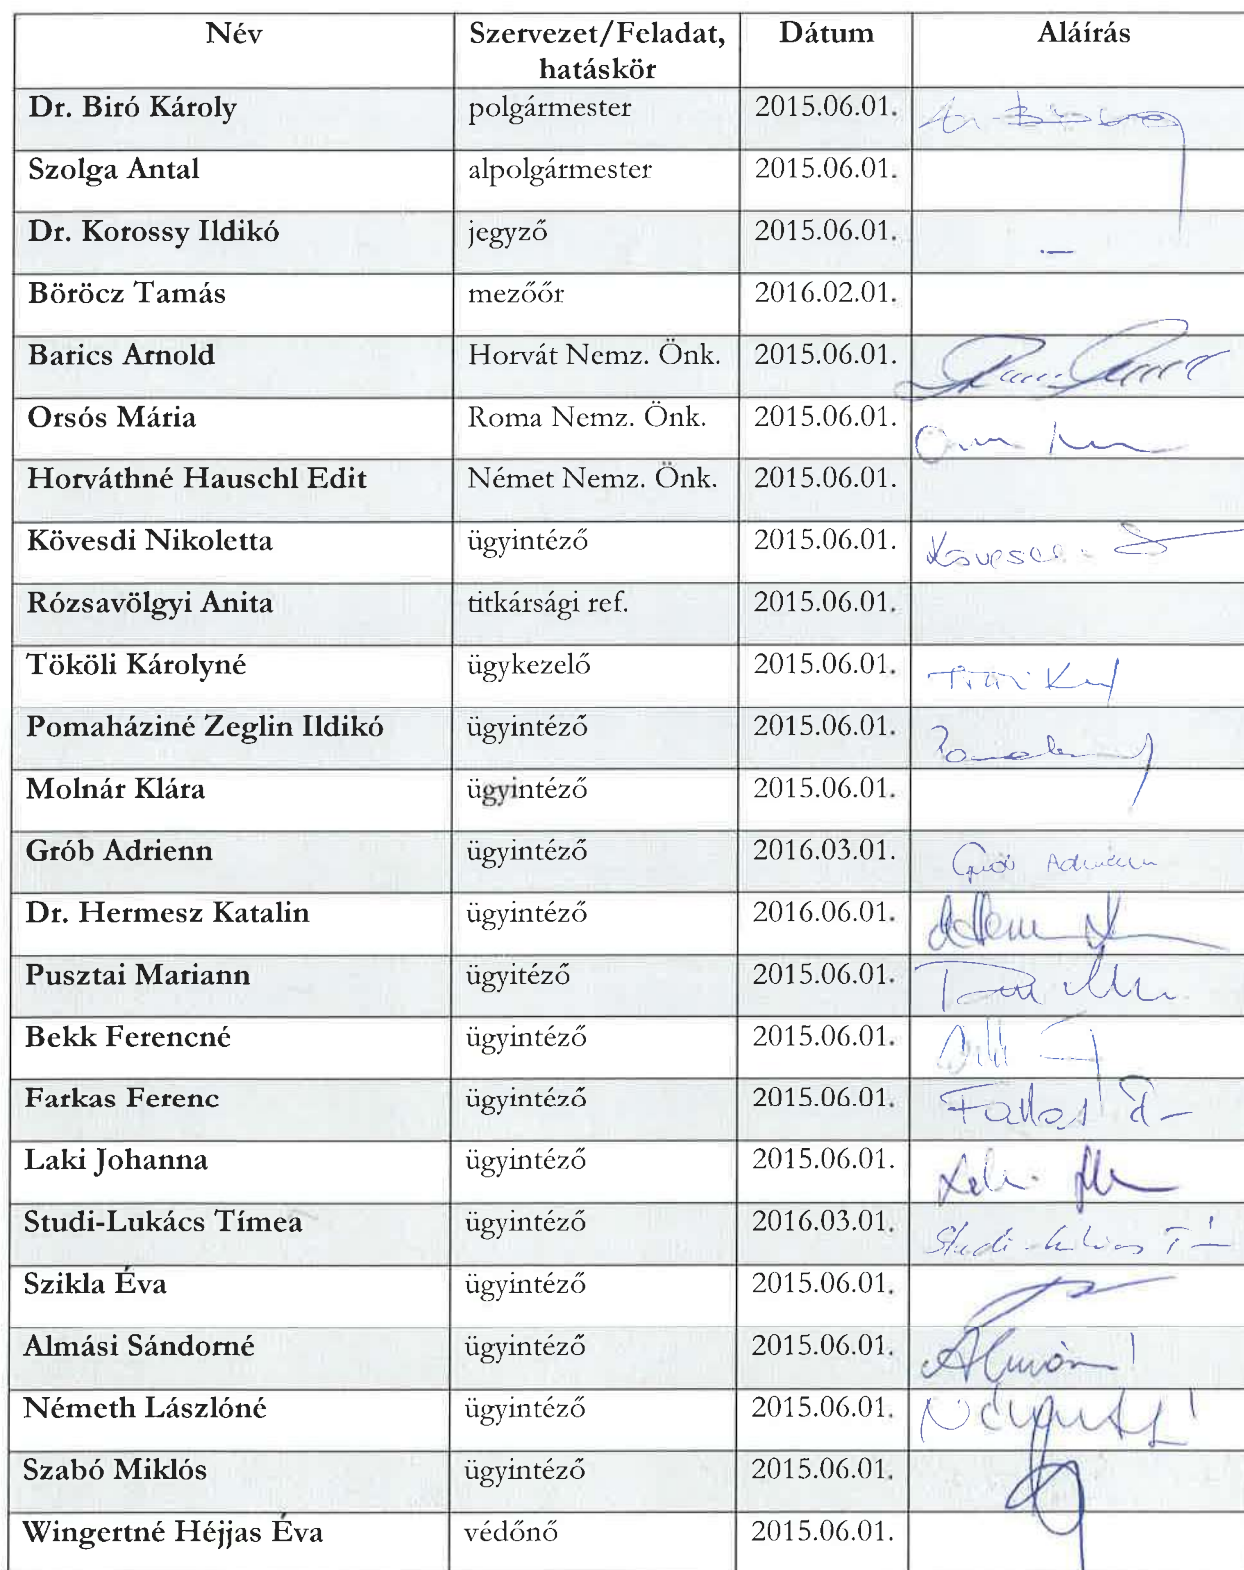 Név Szervezet/Feladat, Dátum Aláírás
hatáskör
Dr. Biró Károly polgármester 2015.06.01.
Szolga Antal alpolgármester 2015.06.01.
Dr. Korossy Ildikó jegyző 2015.06.01. –
Böröcz Tamás mezőőr 2016.02.01.
Barics Arnold Horvát Nemz. Önk. 2015.06.01.
Orsós Mária Roma Nemz. Önk. 2015.06.01.
Horváthné Hauschl Edit Német Nemz. Önk. 2015.06.01.
Kövesdi Nikoletta ügyintéző 2015.06.01.
Rózsavölgyi Anita titkársági ref. 2015.06.01.
Tököli Károlyné ügykezelő 2015.06.01.
Pomaháziné Zeglin Ildikó ügyintéző 2015.06.01.
Molnár Klára ügyintéző 2015.06.01.
Grób Adrienn ügyintéző 2016.03.01. Grób Adrienn
Dr. Hermesz Katalin ügyintéző 2016.06.01.
Pusztai Mariann ügyitéző 2015.06.01.
Bekk Ferencné ügyintéző 2015.06.01.
Farkas Ferenc ügyintéző 2015.06.01. Farkas F
Laki Johanna ügyintéző 2015.06.01.
Studi-Lukács Tímea ügyintéző 2016.03.01. Studi-Lukács T
Szikla Éva ügyintéző 2015.06.01.
Almási Sándorné ügyintéző 2015.06.01.
Németh Lászlóné ügyintéző 2015.06.01.
Szabó Miklós ügyintéző 2015.06.01.
Wingertné Héjjas Éva védőnő 2015.06.01.